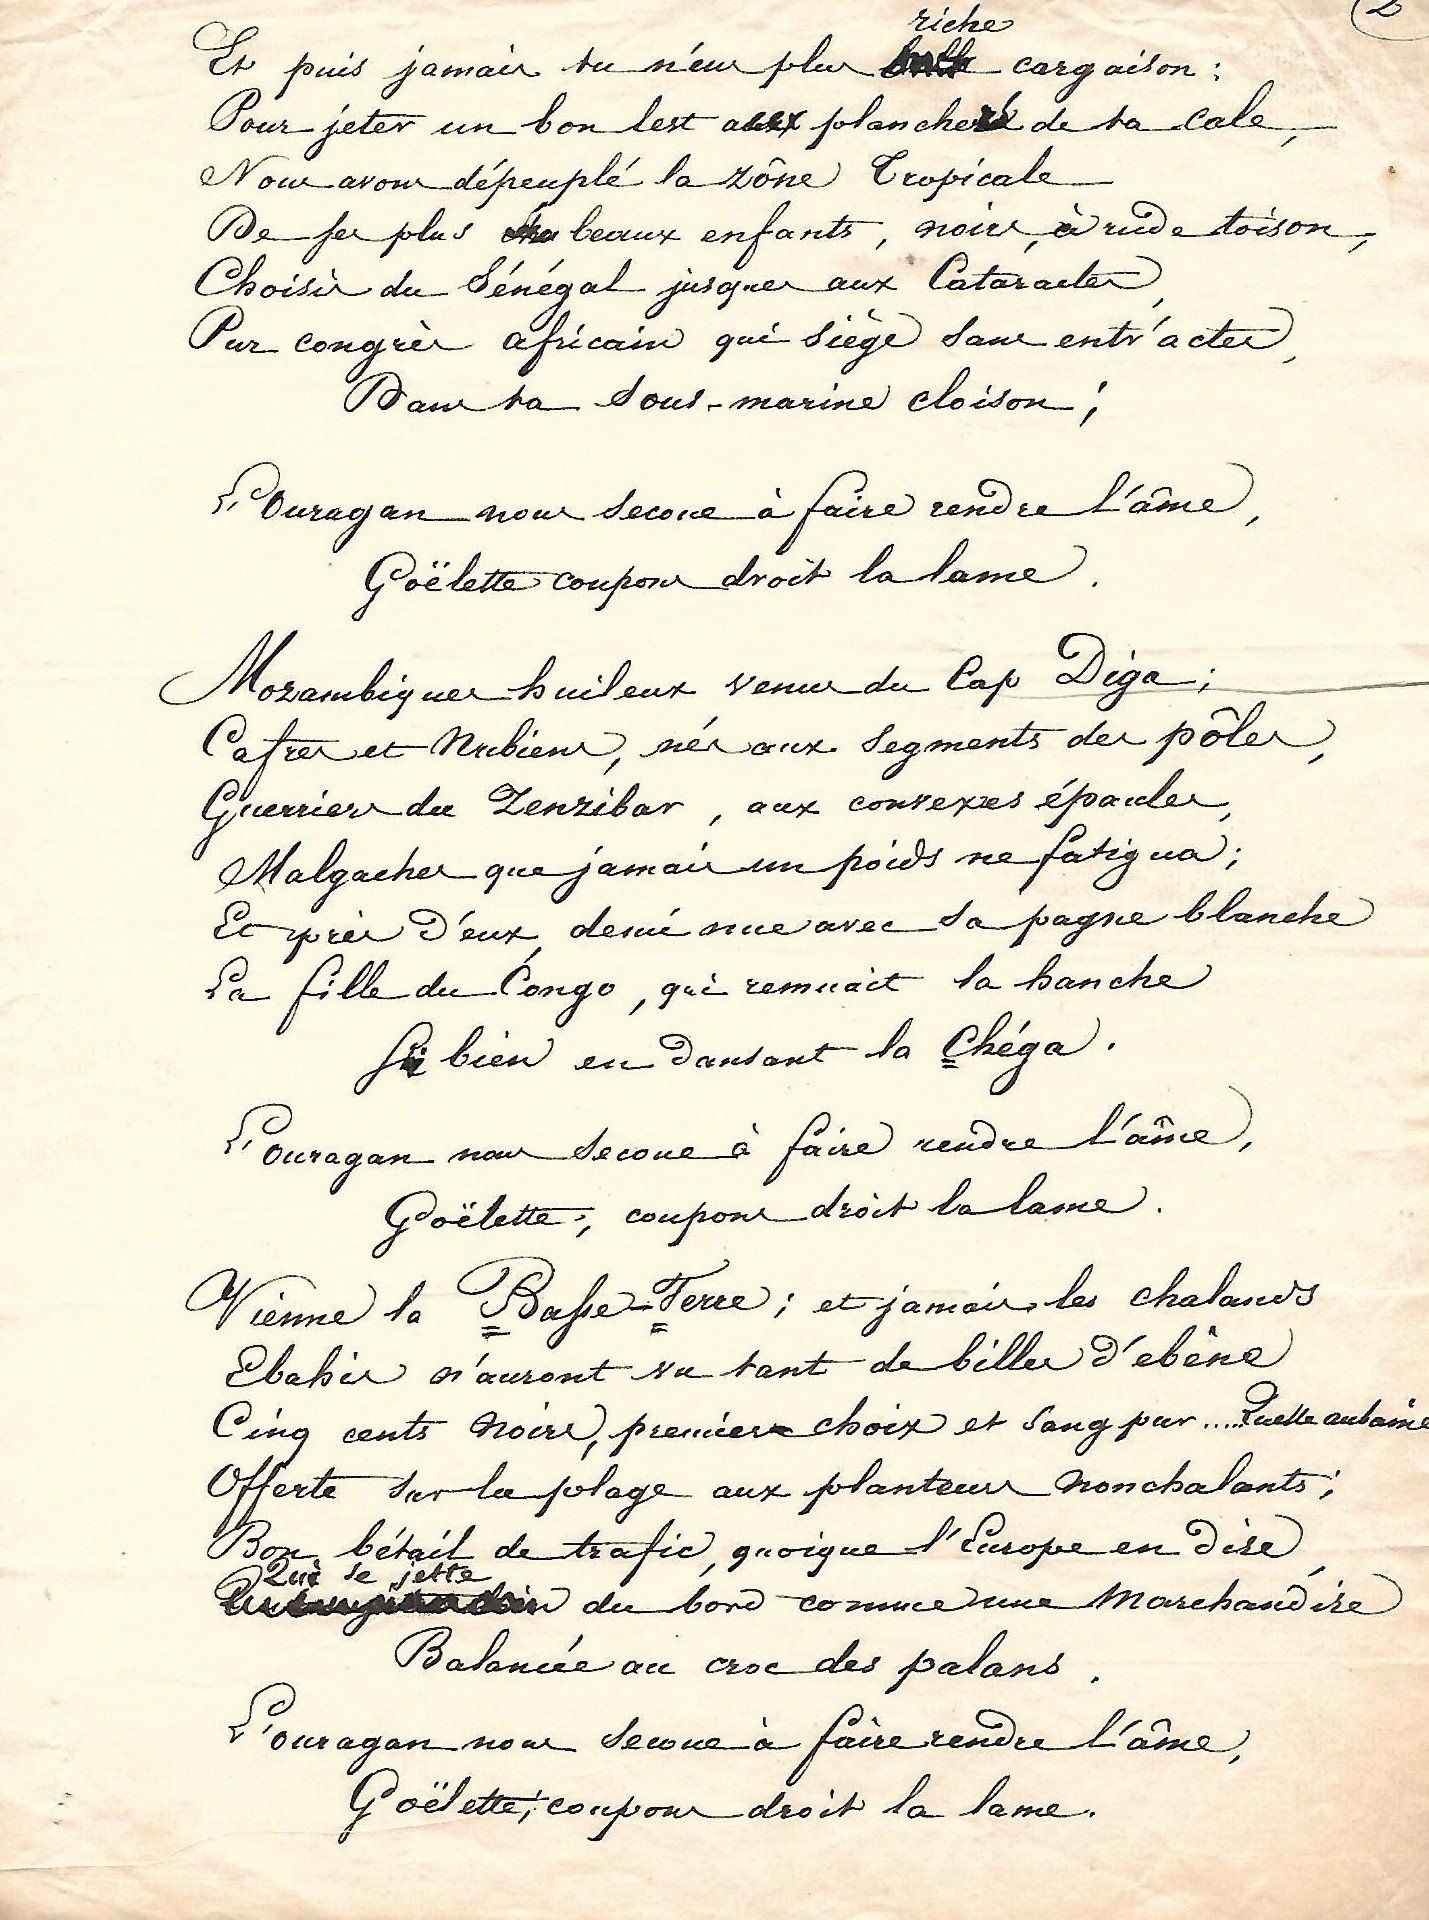 2
riche
Et puis jamais tu n'eus plus cargaison :
Pour jeter un bon lest aux planchers de ta cale,
Nous avons dépeuplé la zône Tropicale
De ses plus beaux enfants, noirs, à rude toison,
Choisis du Sénégal jusques aux Cataractes,
Pur congrès africain qui siège sans entr'actes,
Dans ta sous-marine cloison ;
L'Ouragan nous secoue à faire rendre l'âme,
Goëlette coupons droit la lame.
Mozambiques huileux venus du Cap Diga ;
Cafres et Nubiens, nés aux segments des pôles,
Guerriers du Zenzibar, aux convexes épaules,
Malgaches que jamais un poids ne fatigua ;
Et près d'eux, demi nue avec sa pagne blanche
La fille du Congo, qui remuait la hanche
Si bien en dansant la Chéga.
L'ouragan nous secoue à faire rendre l'âme,
Goëlette, coupons droit la lame.
Vienne la Basse-Terre ; et jamais les chalands
Ebahis n'auront vu tant de billes d'ebène
Cinq cents noirs, premier choix et sang pur ..... Quelle aubaine
Offerte sur la plage aux planteurs nonchalants ;
Bon bétail de trafic, quoique l'Europe en dise,
Qui se jette
du bord comme une marchandise
Balancée au croc des palans.
L'ouragan nous secoue à faire rendre l'âme,
Goëlette, coupons droit la lame.